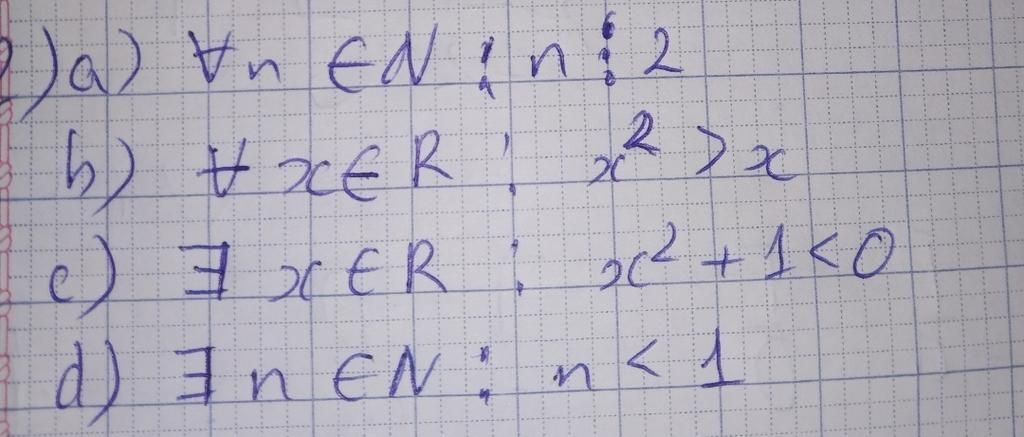 )a) ∀n ∈ N : n ⋮ 2
b) ∀ x ∈ R : x² > x
c) ∃ x ∈ R : x² + 1 < 0
d) ∃ n ∈ N : n < 1